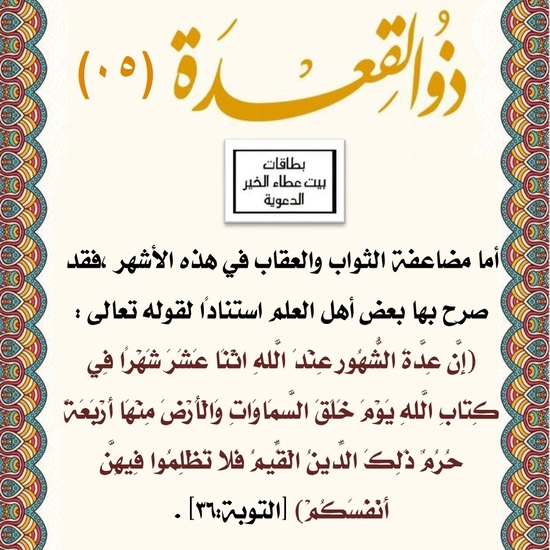 ذُوالقِعْدَة (٠٥)
بطاقات
بيت عطاء الخير
الدعوية
أما مضاعفة الثواب والعقاب في هذه الأشهر ،فقد
صرح بها بعض أهل العلم استنادًا لقوله تعالى :
(إنَّ عِدَّةَ الشُّهُورِ عِنْدَ اللَّهِ اثْنَا عَشَرَ شَهْرًا فِي
كِتَابِ اللَّهِ يَوْمَ خَلَقَ السَّمَاوَاتِ وَالْأَرْضَ مِنْهَا أَرْبَعَةٌ
حُرُمٌ ذَلِكَ الدِّينُ الْقَيِّمُ فَلا تَظْلِمُوا فِيهِنَّ
أنفسَكُمْ) [التوبة:٣٦] .